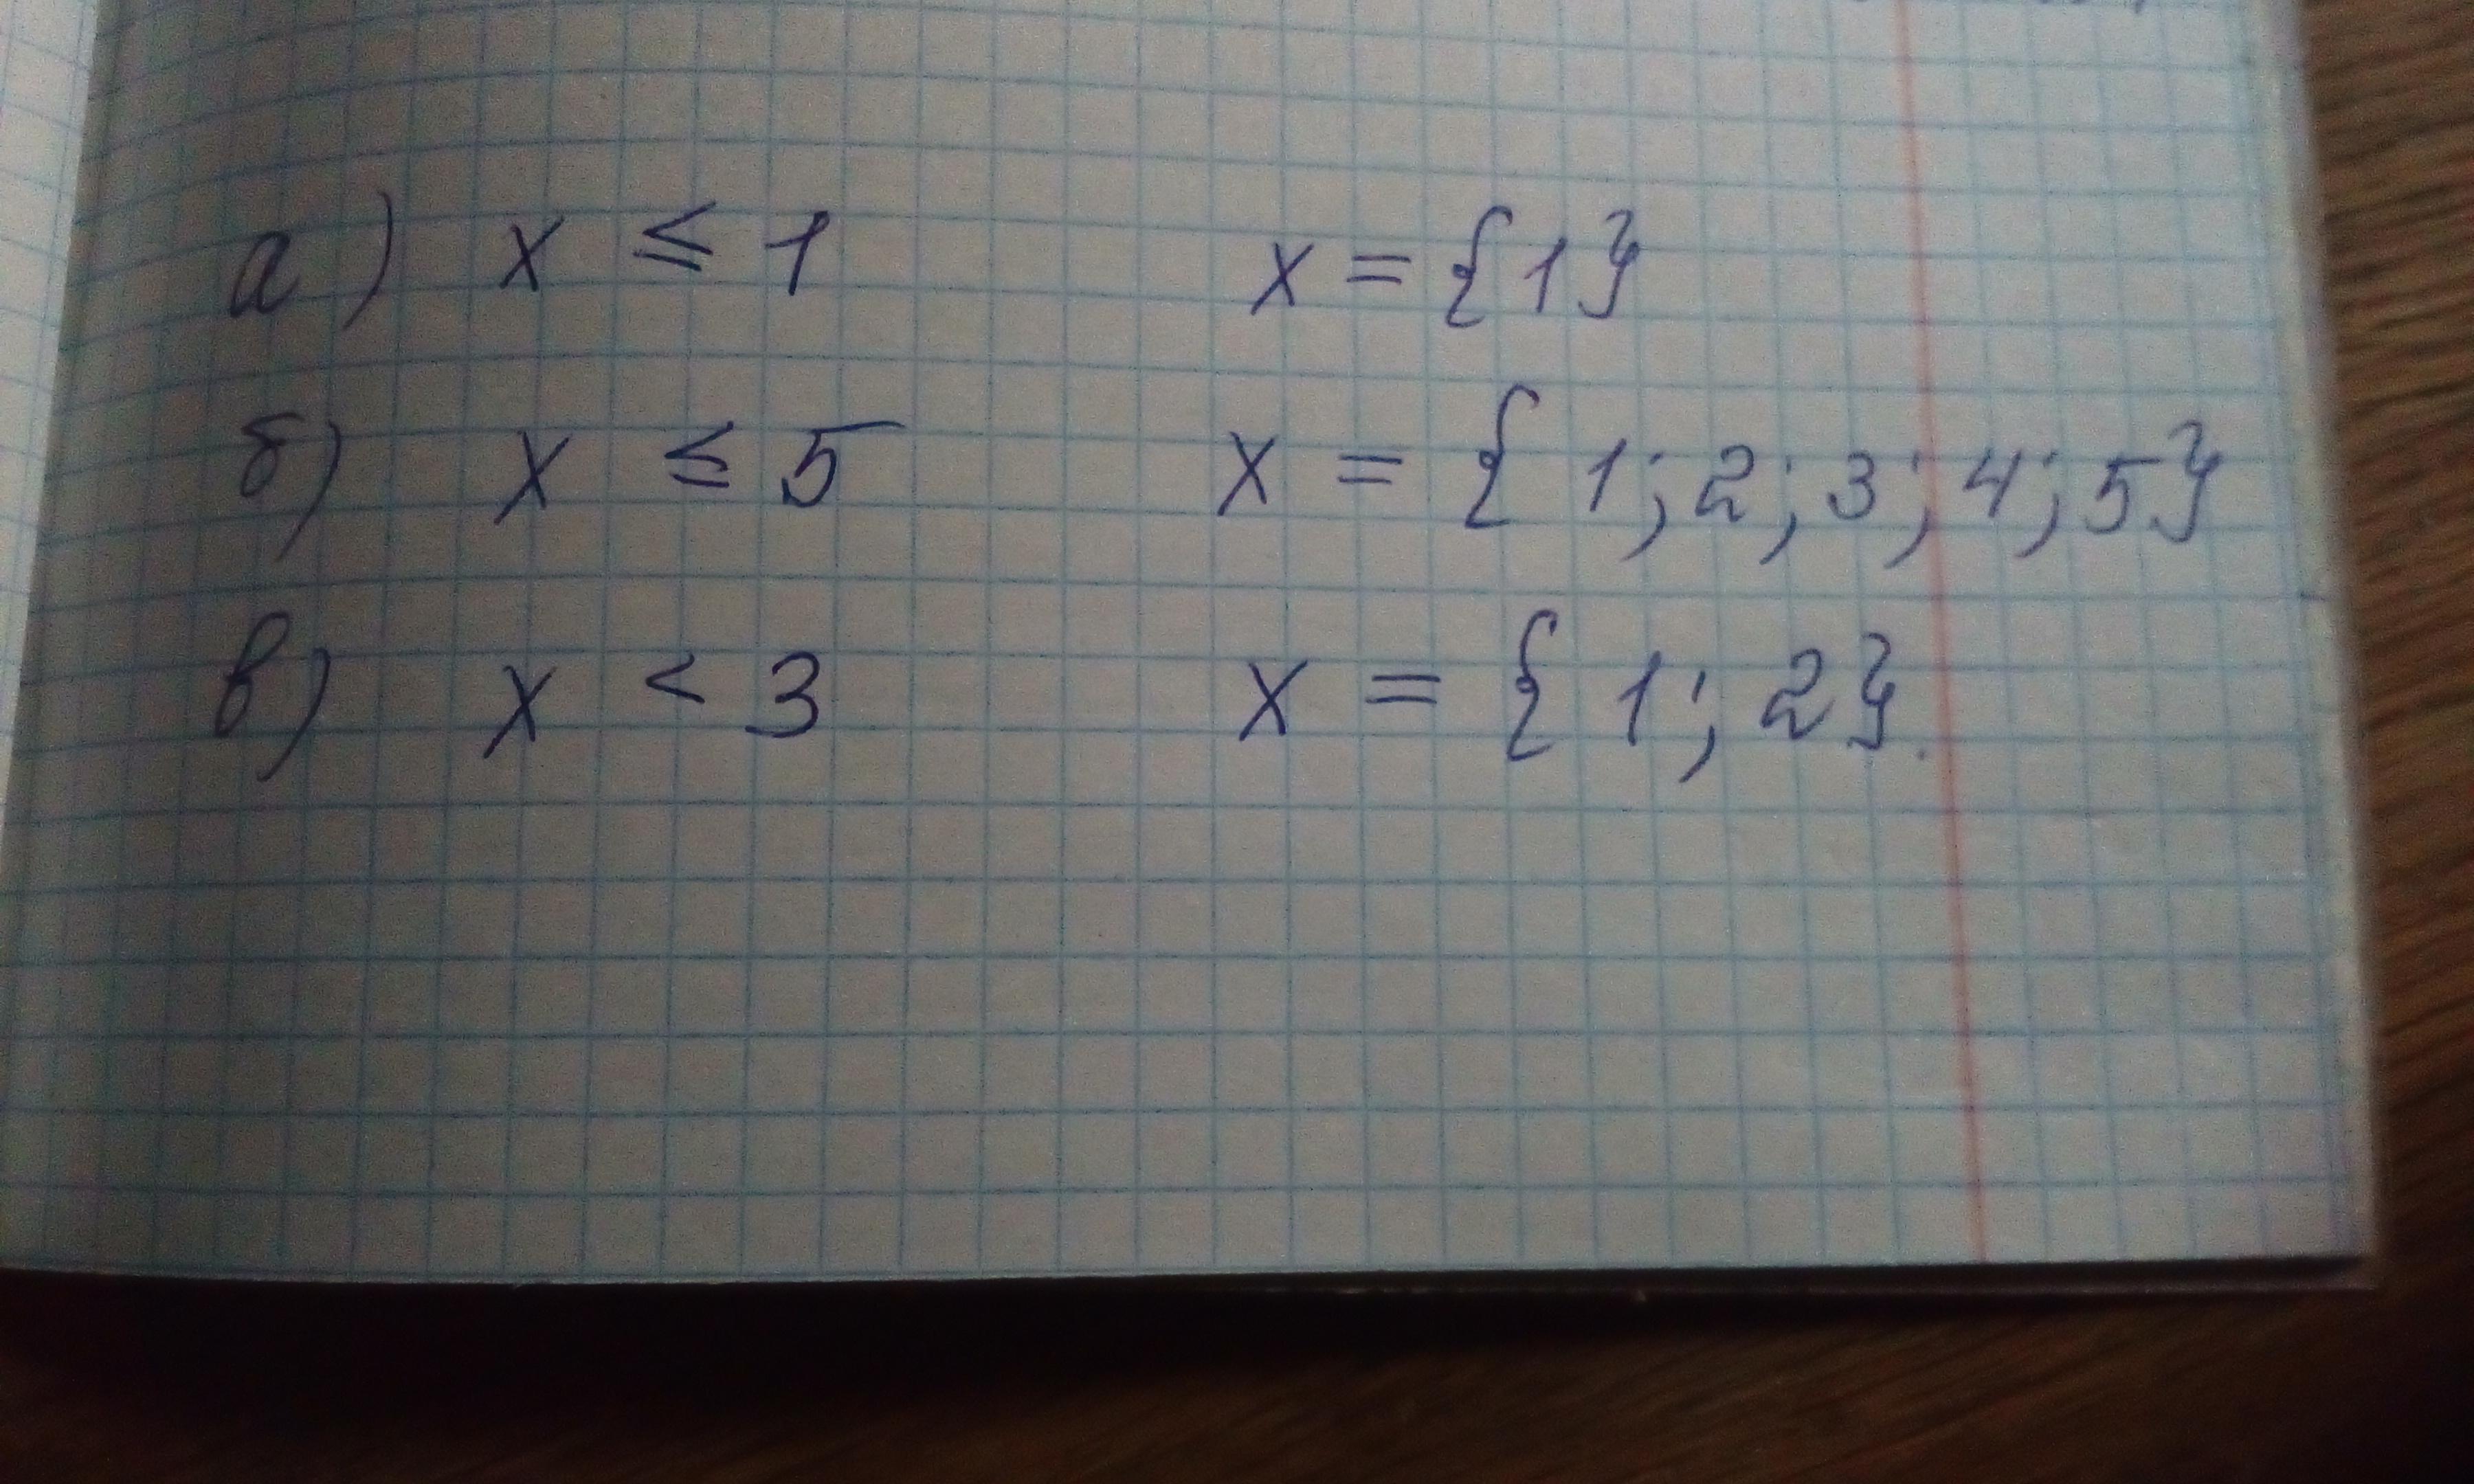 а) x ≤ 1 x = {1}
б) x ≤ 5 x = {1; 2; 3; 4; 5}
в) x < 3 x = {1; 2}.